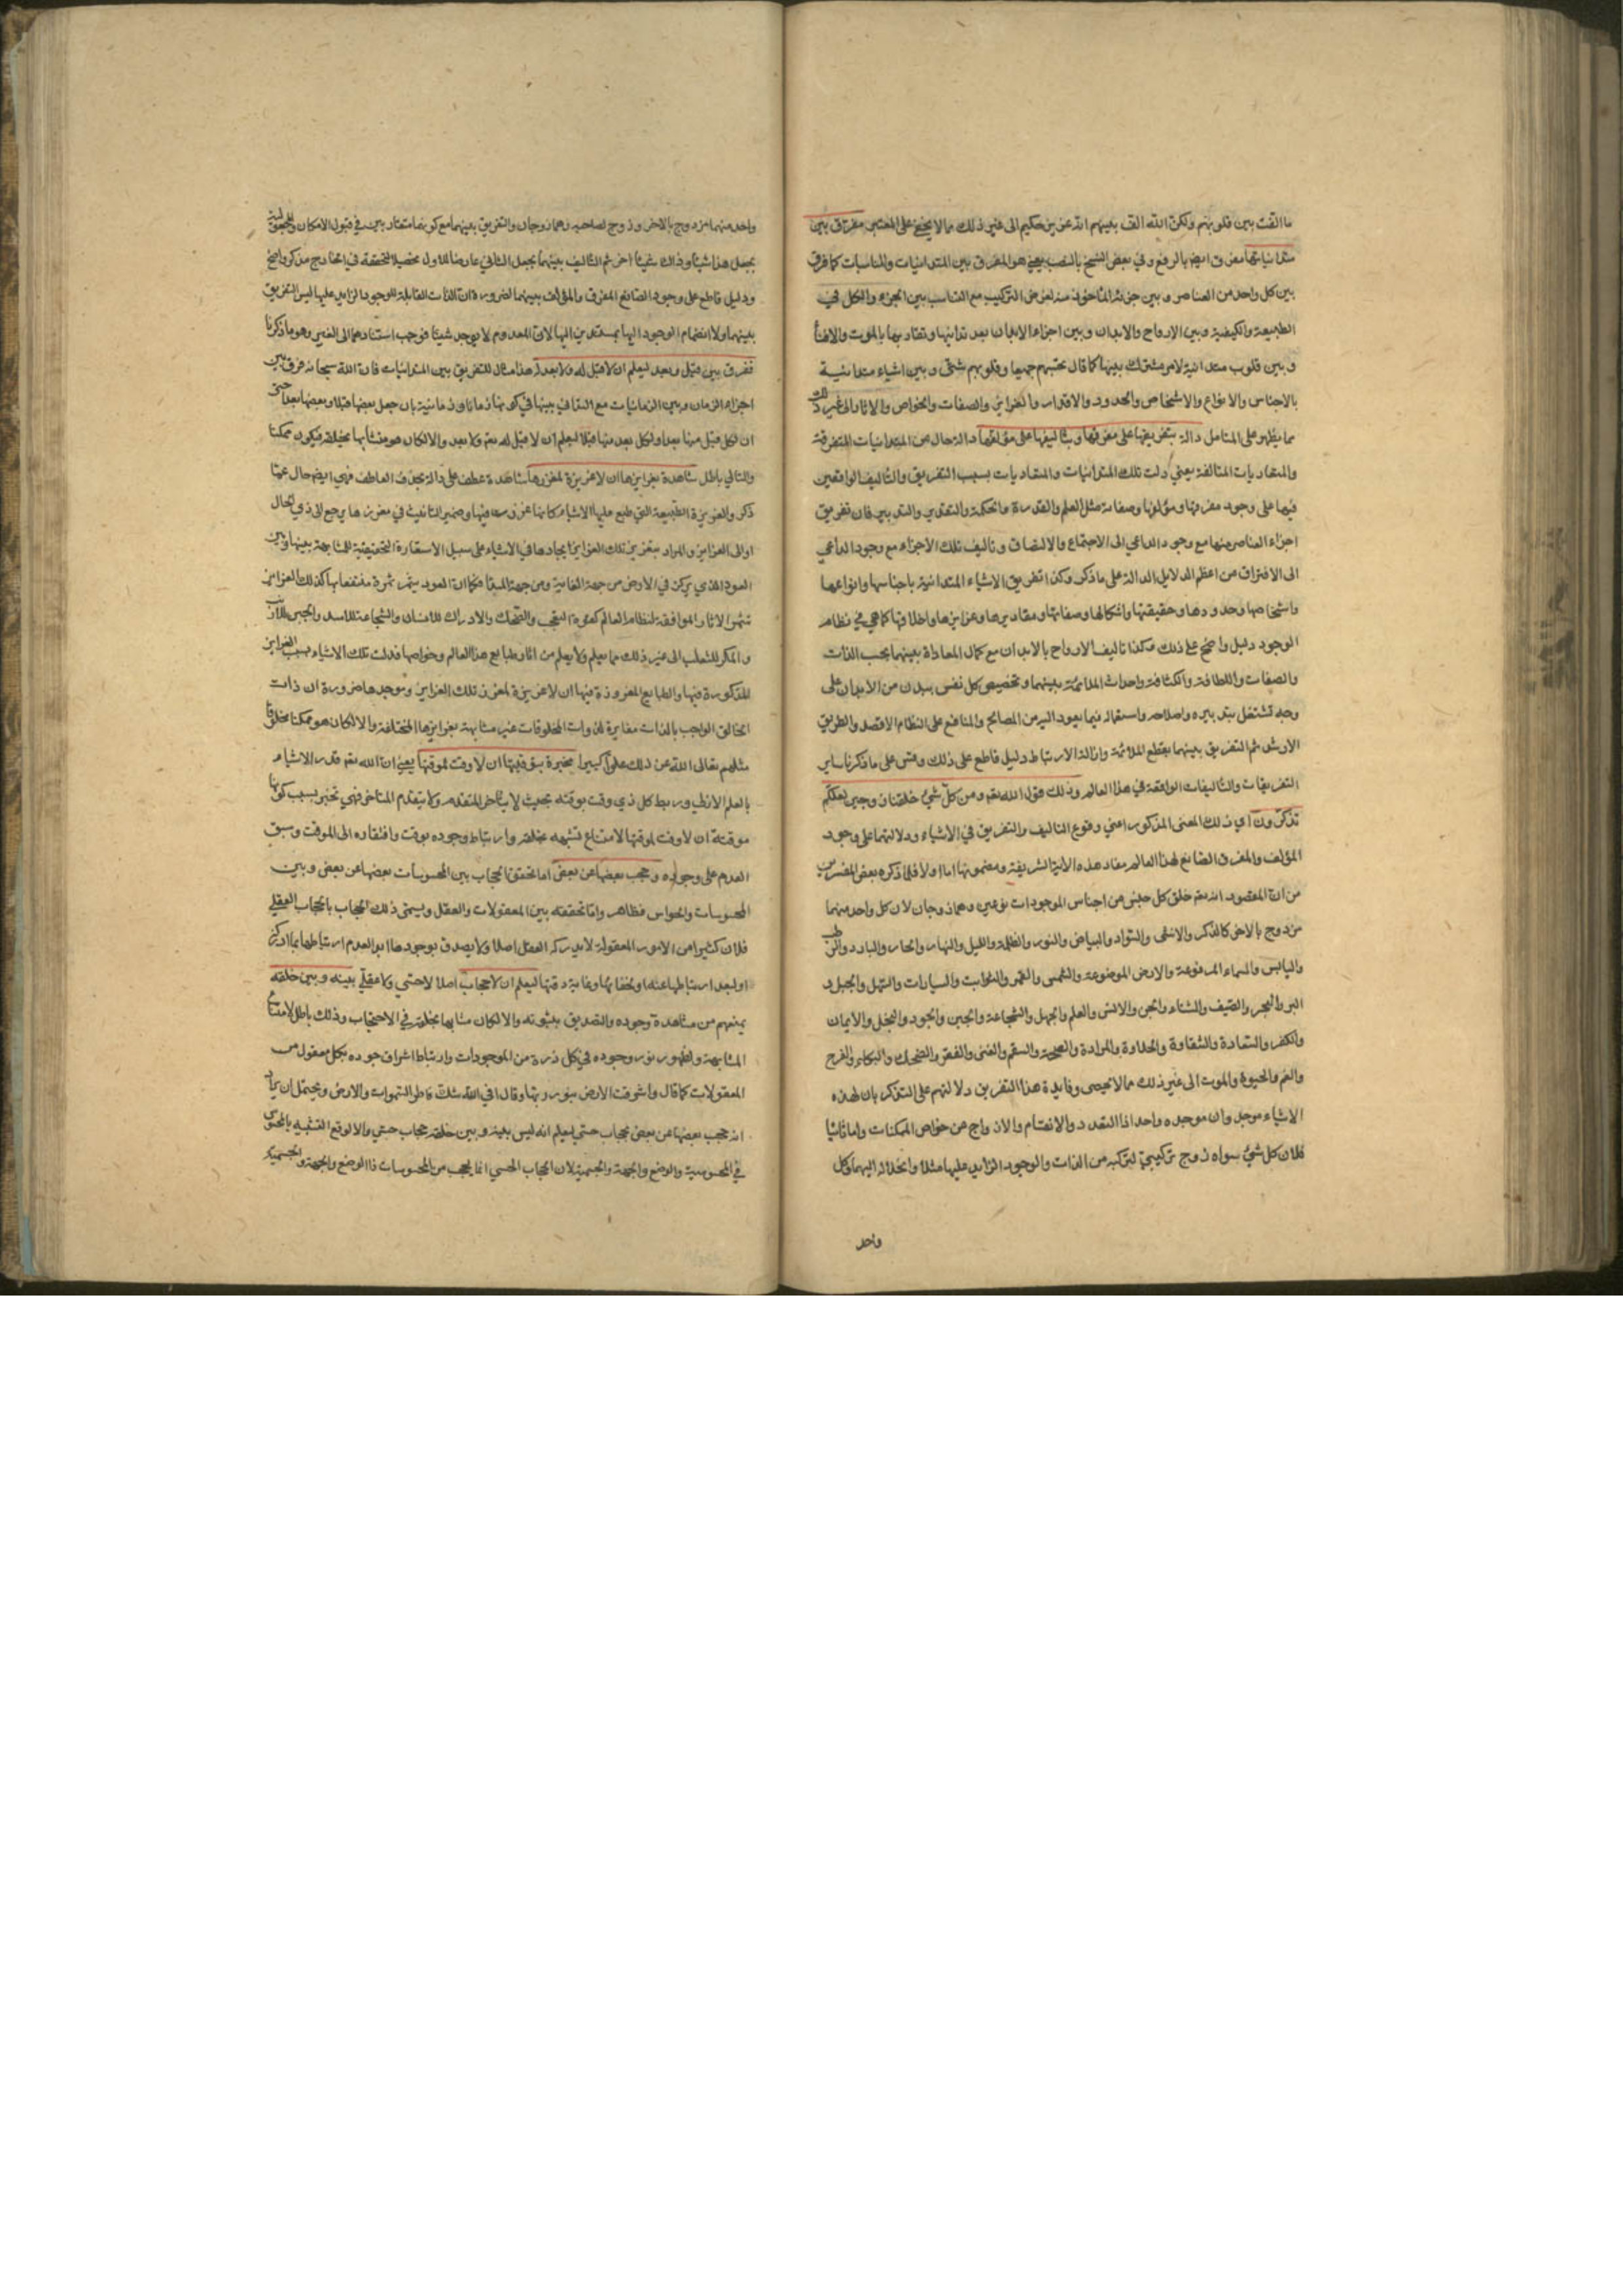 ما الفت بين قلوبهم ولكن الله الف بينهم انه عزيز حكيم الى غير ذلك مما لا يخفى على المعتبر مفرق بين
متدانياتها مفرق ايضا بالرفع وفي بعض النسخ بالنصب يعني هو المفرق بين المتدانيات والمناسبات كما فرق
بين كل واحد من العناصر وبين جزئه الماخوذ منه لغرض التركيب مع التناسب بين الجزء والكل في
الطبيعة والكيفية وبين الارواح والابدان وبين اجزاء الابدان بعد تدانيها وتقاربها بالموت والافناء
وبين قلوب متدانية لامر مشترك بينها كما قال تحسبهم جميعا وقلوبهم شتى وبين اشياء متدانية
بالاجناس والانواع والاشخاص والحدود والاقدار والغرايز والصفات والخواص والاثار الى غير ذلك
مما يظهر على المتامل دالة بتفريقها على مفرقها وبتاليفها على مؤلفها دالة حال من المتدانيات المتفرقة
والمتعاديات المتالفة يعني دلت تلك المتدانيات والمتعاديات بسبب التفريق والتاليف الواقعين
فيها على وجود مفرقها ومؤلفها وصفاته مثل العلم والقدرة والحكمة والتقدير والتدبير فان تفريق
اجزاء العناصر منها مع وجود الداعي الى الاجتماع والالتصاق وتاليف تلك الاجزاء مع وجود الداعي
الى الافتراق من اعظم الدلايل الدالة على ما ذكر وكذا تفريق الاشياء المتدانية باجناسها وانواعها
واشخاصها وحدودها وحقيقتها واشكالها وصفاتها ومقاديرها وغرايزها واخلاقها كما هي في نظام
الوجود دليل واضح على ذلك وكذا تاليف الارواح بالابدان مع كمال المعاداة بينهما بحسب الذات
والصفات واللطافة والكثافة واحداث الملائمة بينهما وتخصيص كل نفس ببدن من الابدان على
وجه تشتغل بتدبيره واصلاحه واستعماله فيما يعود اليه من المصالح والمنافع على النظام الاقصد والطريق
الارشد ثم التفريق بينهما بقطع الملائمة وازالة الارتباط دليل قاطع على ذلك وقس على ما ذكرنا ساير
التفريقات والتاليفات الواقعة في هذا العالم وذلك قول الله تعم ومن كل شيء خلقنا زوجين لعلكم
تذكرون اي ذلك المعنى المذكور اعني وقوع التاليف والتفريق في الاشياء ودلالتهما على وجود
المؤلف والمفرق الصانع لهذا العالم مفاد هذه الاية الشريفة ومضمونها اما اولا فلما ذكره بعض المفسرين
من ان المقصود انه تعم خلق كل جنس من اجناس الموجودات نوعين وهما زوجان لان كل واحد منهما
مزدوج بالاخر كالذكر والانثى والسواد والبياض والنور والظلمة والليل والنهار والحار والبارد والرطب
واليابس والسماء المرفوعة والارض الموضوعة والشمس والقمر والثوابت والسيارات والسهل والجبل و
البر والبحر والصيف والشتاء والجن والانس والعلم والجهل والشجاعة والجبن والجود والبخل والايمان
والكفر والسعادة والشقاوة والحلاوة والمرارة والصحة والسقم والغنى والفقر والضحك والبكاء والفرح
والغم والحيوة والموت الى غير ذلك مما لا يحصى وفايدة هذا التفريق دلالتهم على التذكر بان لهذه
الاشياء موجدا وان موجده واحد اذا التعدد والانقسام والازواج من خواص الممكنات واما ثانيا
فلان كل شيء سواه زوج تركيبي لتركبه من الذات والوجود الزايد عليها مثلا وانحلاله اليهما وكل
واحد
واحد منهما مزدوج بالاخر وزوج لصاحبه وهما زوجان والتفريق بينهما مع كونهما متقاربين في قبول الامكان
بجعل هذا شيئا وذاك شيئا اخر ثم التاليف بينهما بجعل الثاني عارضا للاول تحصيلا لتحققه في الخارج مذكر واضح
ودليل قاطع على وجود الصانع المفرق والمؤلف بينهما لضرورة ان الذات القابلة للوجود الزايد عليها ليس التفريق
بينهما ولا انضمام الوجود اليها بمستند من اليها لان المعدوم لا يوجد شيئا فوجب استنادهما الى الغير وهو ما ذكرنا
ففرق بين قبل وبعد ليعلم ان لا قبل له ولا بعد له هذا مثال للتفريق بين المتدانيات فان الله سبحانه فرق بين
اجزاء الزمان وبين الزمانيات مع التدافي بينها في كونها زمانا وزمانية بان جعل بعضها قبلا وبعضها بعدا حتى
ان لكل قبل منها بعدا ولكل بعد منها قبلا ليعلم ان لا قبل له تعم ولا بعد والا لكان هو متشابها بخلقه فيكون ممكنا
والتالي باطل شاهدة بغرايزها ان لا غريزة لمغرزها شاهدة عطف على دالة بحذف العاطف فهي ايضا حال عما
ذكر والغريزة الطبيعة التي طبع عليها الاشياء كانها غرزت فيها وضمير التانيث في مغرزها يرجع الى ذي الحال
او الى الغرايز والمراد بتغريز تلك الغرايز ايجادها في الاشياء على سبيل الاستعارة التحقيقية للمشابهة بينها وبين
العود الذي يركز في الارض من جهة الغاية ومن جهة المبدا فكما ان العود يثمر ثمرة منتفعا بها كذلك الغرايز
تثمر الاثار الموافقة لنظام العالم كقوة التعجب والضحك والادراك للانسان والشجاعة للاسد والجبن للارنب
والمكر للثعلب الى غير ذلك مما يعلم ولا يعلم من اثار طبايع هذا العالم وخواصها فدلت تلك الاشياء بسبب الغرايز
المذكورة فيها والطبايع المغروزة فيها ان لا غريزة لمغرز تلك الغرايز وموجدها ضرورة ان ذات
الخالق الواجب بالذات مغايرة لذوات المخلوقات غير مشابهة بغرايزها المختلفة والا لكان هو ممكنا مخلوقا
مثلهم تعالى الله عن ذلك علوا كبيرا مخبرة بتوقيتها ان لا وقت لموقتها يعني ان الله تعم قدر الاشياء
بالعلم الازلي وربط كل ذي وقت بوقته بحيث لا يتاخر المتقدم ولا يتقدم المتاخر فهي تخبر بسبب كونها
موقتة ان لا وقت لموقتها لامتناع تشبهه بخلقه وارتباط وجوده بوقت وافتقاره الى الموقت وسبق
العدم على وجوده وحجب بعضها عن بعض اما تحقق الحجاب بين المحسوسات بعضها عن بعض وبين
المحسوسات والحواس فظاهر واما تحققه بين المعقولات والعقل ويسمى ذلك الحجاب بالحجاب العقلي
فلان كثيرا من الامور المعقولة لا يدركه العقل اصلا ولا يصدق بوجودها ابدا لعدم ارتباطها بما ادركه
او لبعد ارتباطها عنه او لخفائها وغاية دقتها ليعلم ان لا حجاب اصلا لا حسي ولا عقلي بينه وبين خلقه
يمنعهم من مشاهدة وجوده والتصديق بثبوته والا لكان مشابها بخلقه في الاحتجاب وذلك باطل لامتناع
المشابهة ولظهور نور وجوده في كل ذرة من الموجودات وارتباط اشراف جوده بكل معقول من
المعقولات كما قال واشرقت الارض بنور ربها وقال افي الله شك فاطر السموات والارض ويحتمل ان يراد
انه حجب بعضها عن بعض بحجاب حسي ليعلم انه ليس بينه وبين خلقه حجاب حسي والا لوقع التشبيه بالمحسوس
في المحسوسية والوضع والجهة والجسمية لان الحجاب الحسي انما يحجب من المحسوسات ذا الوضع والجهة والجسمية